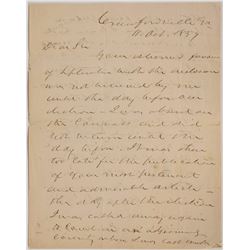 Crawfordville Ga
11 Oct. 1859
Dear Sir
Your esteemed favor
of September with the enclosure
was not received by me
until the day before our
election. I was absent on
the canvass and did
not return until the
day before. It was then
too late for the publication
of your most pertinent
and admirable article
the day after the election
I was called away again
to Court in an adjoining
County when I was last week